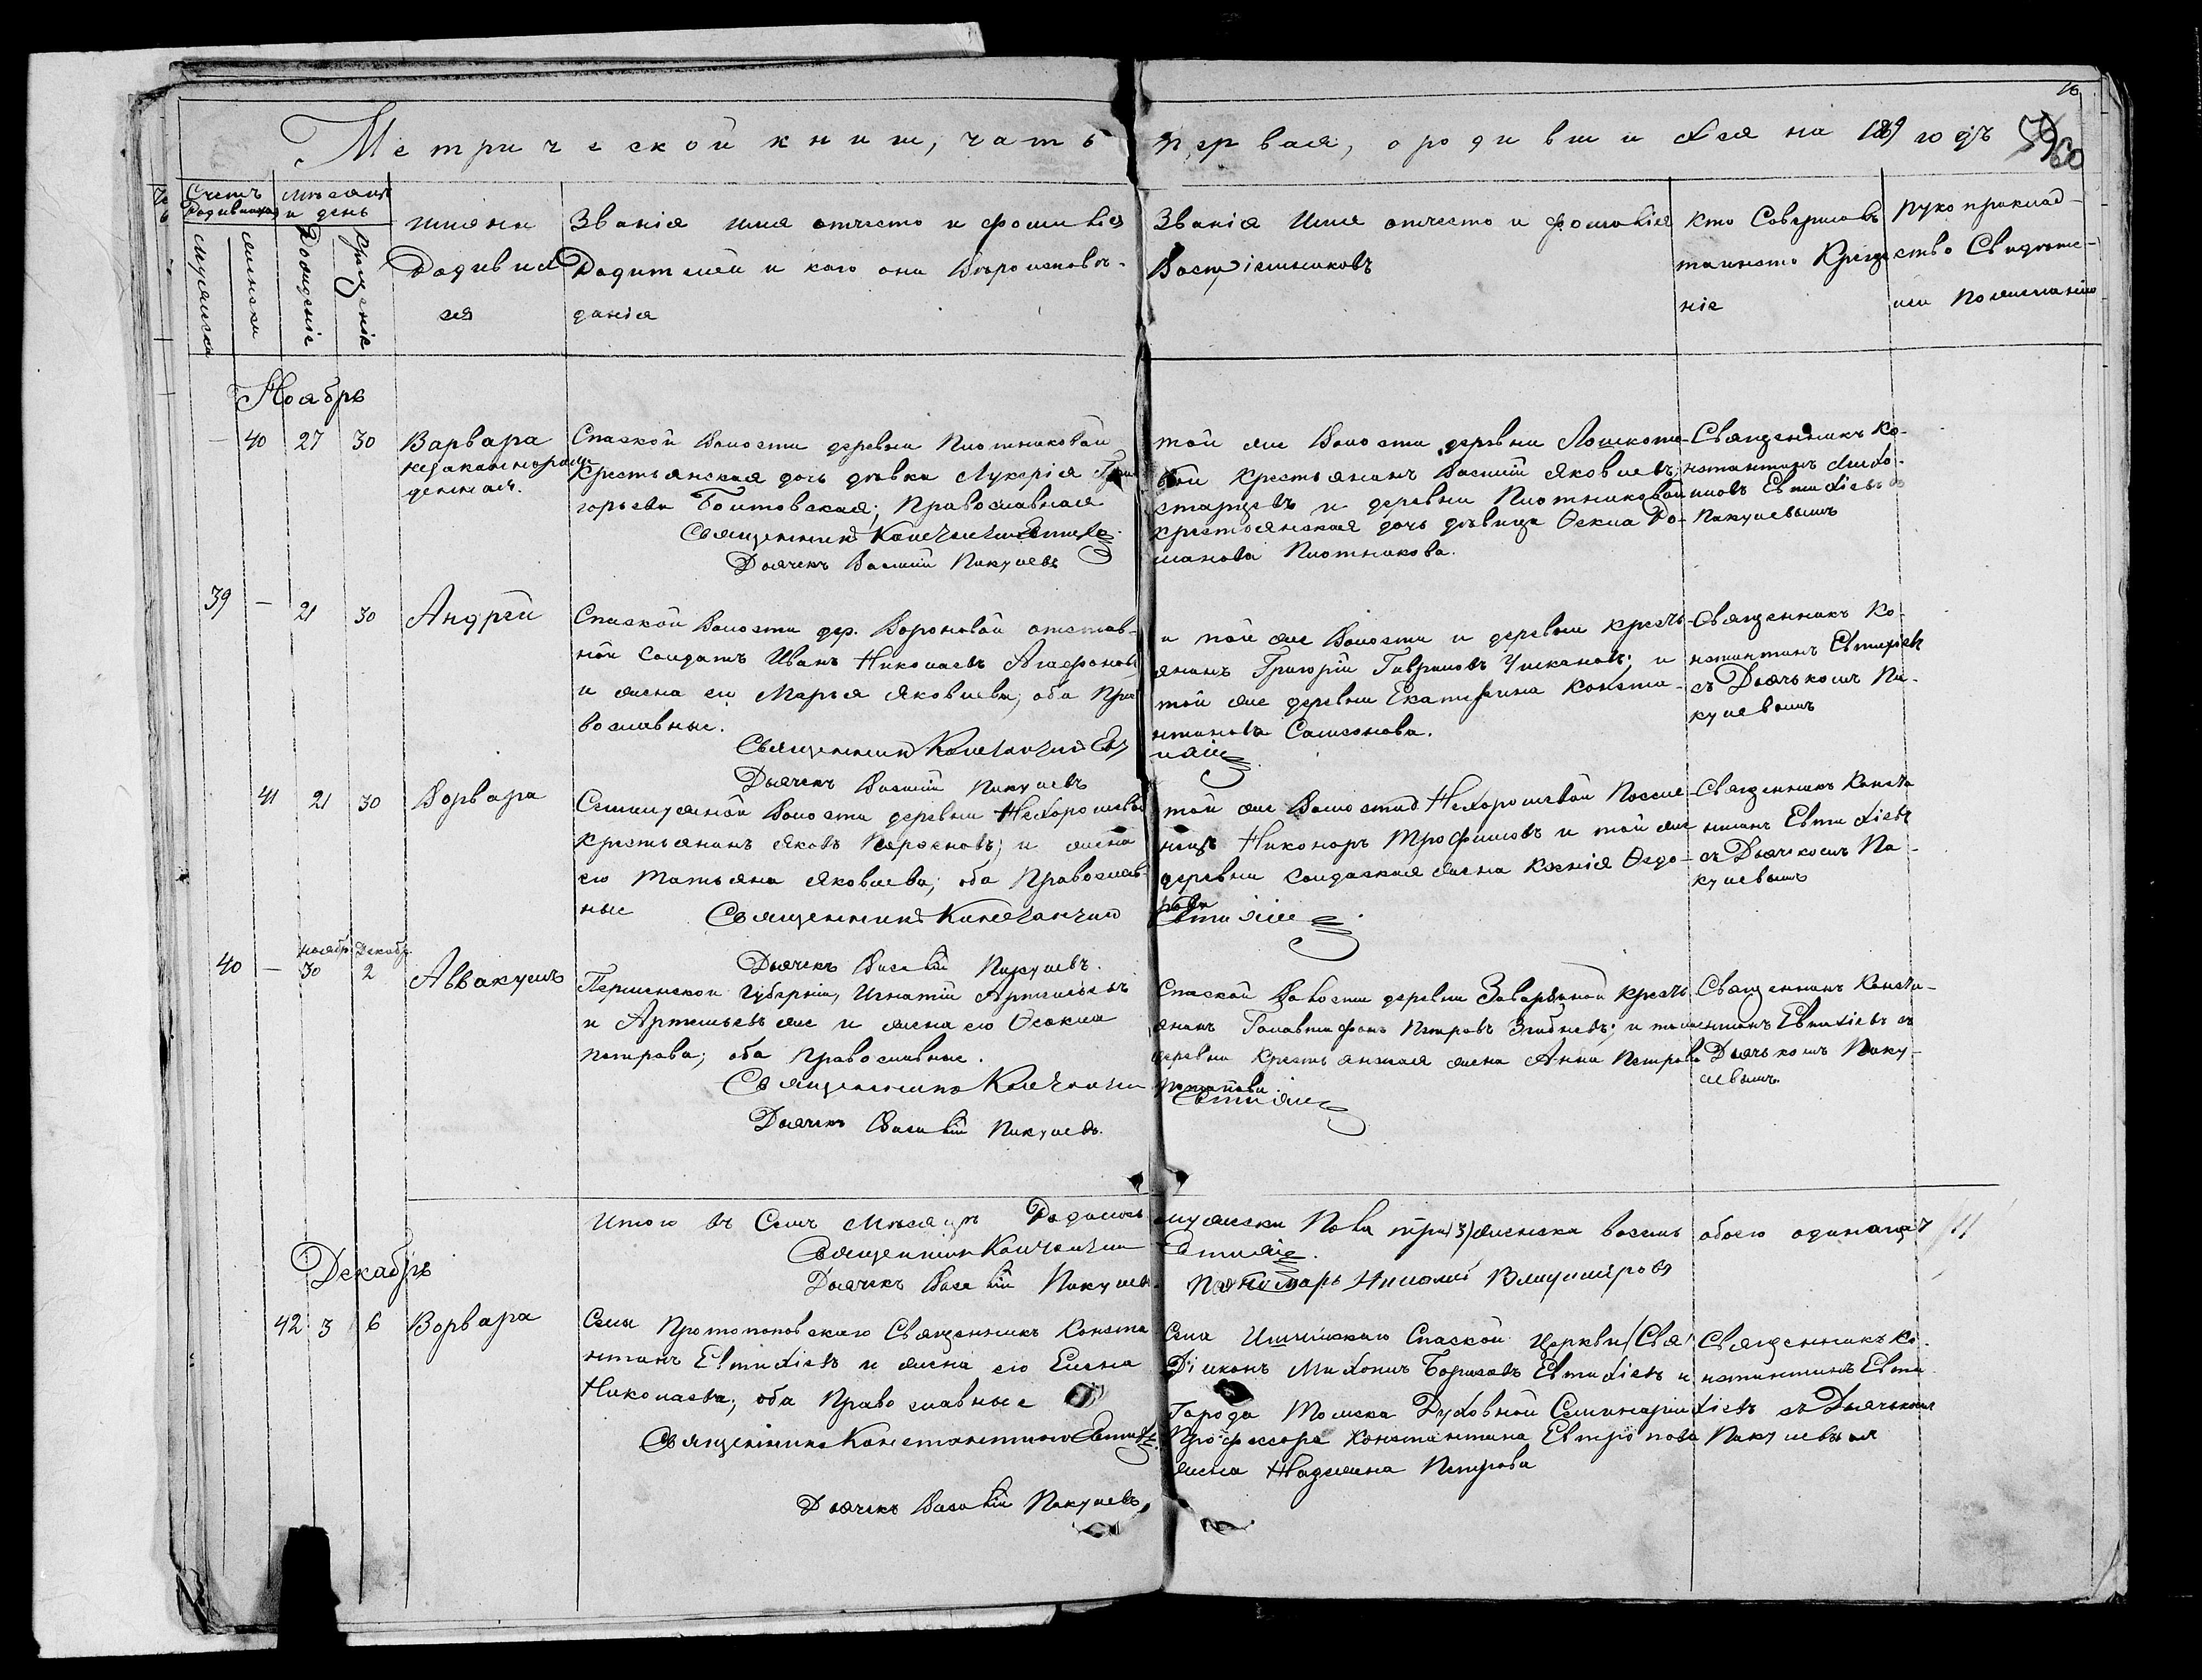 16
Метрической книги, часть первая, о родившихся на 1869 годъ 60
Счетъ родившихся
мужеска
женска
Мѣсяцъ и день
Рожденіе
Крещеніе
Имяна
Родивших
ся
Званія имя отчество и фомилія
Родителей и каго они Вѣроисповѣ-
данія
Званія Имя отчество и фомилія
Воспріемниковъ
Кто Совершалъ
таинство Креще
ніе
Рукоприклад-
ство Свидѣте-
лей по желанію
Ноябрь
— 40 27 30 Варвара
незаконнорож
денная.
Спаской Волости деревни Плотниковой
Крестьянская дочь дѣвка Лукерія Гри
горьева Болтовская; Православная
Священникъ Константинъ Евтихіе
Дьячекъ Василій Пакулевъ
той же Волости деревни Лошкоме-
вой Крестьянинъ Василій Яковлевъ
старцевъ и деревни Плотниковой
крестьянская дочь дѣвица Ѳекла Ро-
манова Плотникова.
Священникъ Ко-
нстантинъ Михо-
иловъ Евтихіевъ съ
Пакулевымъ
39 — 21 30 Андрей
Спаской Волости дер. Вороновой отстав-
ной Солдатъ Иванъ Николаевъ Агафоновъ
и жена ег Марья Яковлева; оба Пра
вославные.
Священникъ Константинъ Евт
Дьячекъ Василій Пакулевъ
и той же Волости и деревни Кресть-
янинъ Григорій Гавриловъ Ческановъ; и
той же деревни Екатерина Конста-
нтинова Самсонова.
ихіе
Священникъ Ко-
нстантинъ Евтихіевъ
съ Дьячькомъ Па-
кулевымъ
41 21 30 Ворвара
Семилужной Волости деревни Нехорошевой
Крестьянинъ Яковъ Парѳеновъ; и жена
его Татьяна Яковлева; оба Православ-
ные
Священникъ Константинъ
Дьячекъ Василій Пакулевъ.
той же Волости д Нехорошевой Посель-
нецъ Никоноръ Трофимовъ и той же
деревни Солдаская жена Ксенія Ѳедо-
това
Евтихіе
Священникъ Конста
нтинъ Евтихіевъ
съ Дьячкомъ Па-
кулевымъ
40 — ноябр 30 Декабр 2 Аввакумъ
Пермской губерніи, Игнатій Артемьевъ
и Артемьевъ же и жена его Ѳекла
Петрова; оба Православные.
Священникъ Константинъ
Дьячекъ Василій Пакулевъ.
Спаской Волости деревни Заварзиной Кресть
янинъ Галактіонъ Петровъ Згибневъ; и той же
деревни Крестьянская жена Анна Петрова
Потапова.
Евтихіе
Священникъ Конста-
нтинъ Евтихіевъ съ
Дьячькомъ Паку-
левымъ.
Итого въ Семъ Мѣсяцѣ Родилось мужеска Пола три (3) женска восемь обоего одинацать 11
Священникъ Константинъ Евтихіе.
Дьячекъ Василій Пакулевъ. Пономарь Николай Владиміровъ
Декабрь
42 3 6 Ворвара
Села Протопоповскаго Священникъ Конста
нтинъ Евтихіевъ и жена его Елена
Николаева; оба Православные
Священникъ Константинъ Евтихіе.
Дьячекъ Василій Пакулевъ
Села Спаской Церкви Свя
Діяконъ Михаилъ Борисовъ Евтихіевъ и
Города Томска Духовной Семинаріи
Профессора Константина Евтропова
жена Надежна Петрова
Священникъ Ко-
нстантинъ Евти
хіевъ съ Дьячькомъ
Пакулевымъ